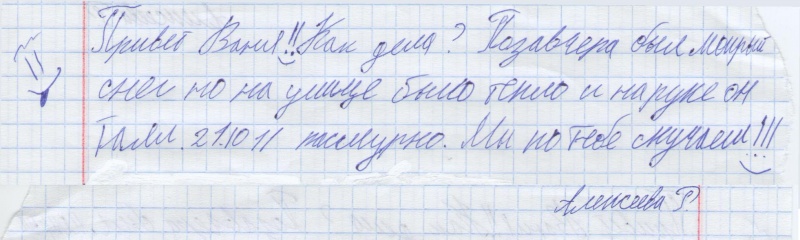 Привет Ваня!! Как дела? Позавчера был мокрый
снег но на улице было тепло и на руке он
таял. 21.10 11 пасмурно. Мы по тебе скучаем!!!
Алексеева Р.